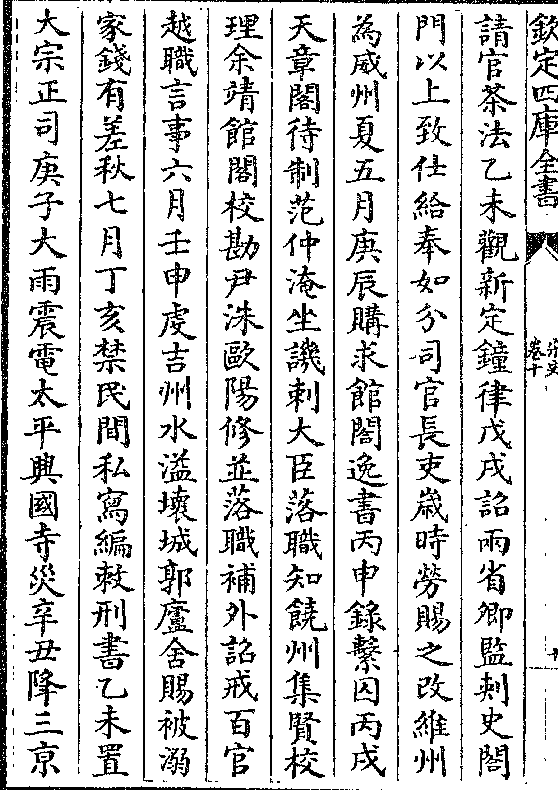 欽定四庫全書
宋史
卷十
請官茶法乙未觀新定鐘律戊戌詔兩省卿監刺史閤
門以上致仕給奉如分司官長吏嵗時勞賜之改維州
為威州夏五月庚辰購求館閣逸書丙申錄繫囚丙戌
天章閣待制范仲淹坐譏刺大臣落職知饒州集賢校
理余靖館閣校勘尹洙歐陽修並落職補外詔戒百官
越職言事六月壬申虔吉州水溢壞城郭廬舍賜被溺
家錢有差秋七月丁亥禁民間私寫編敕刑書乙未置
大宗正司庚子大雨震電太平興國寺災辛丑降三京